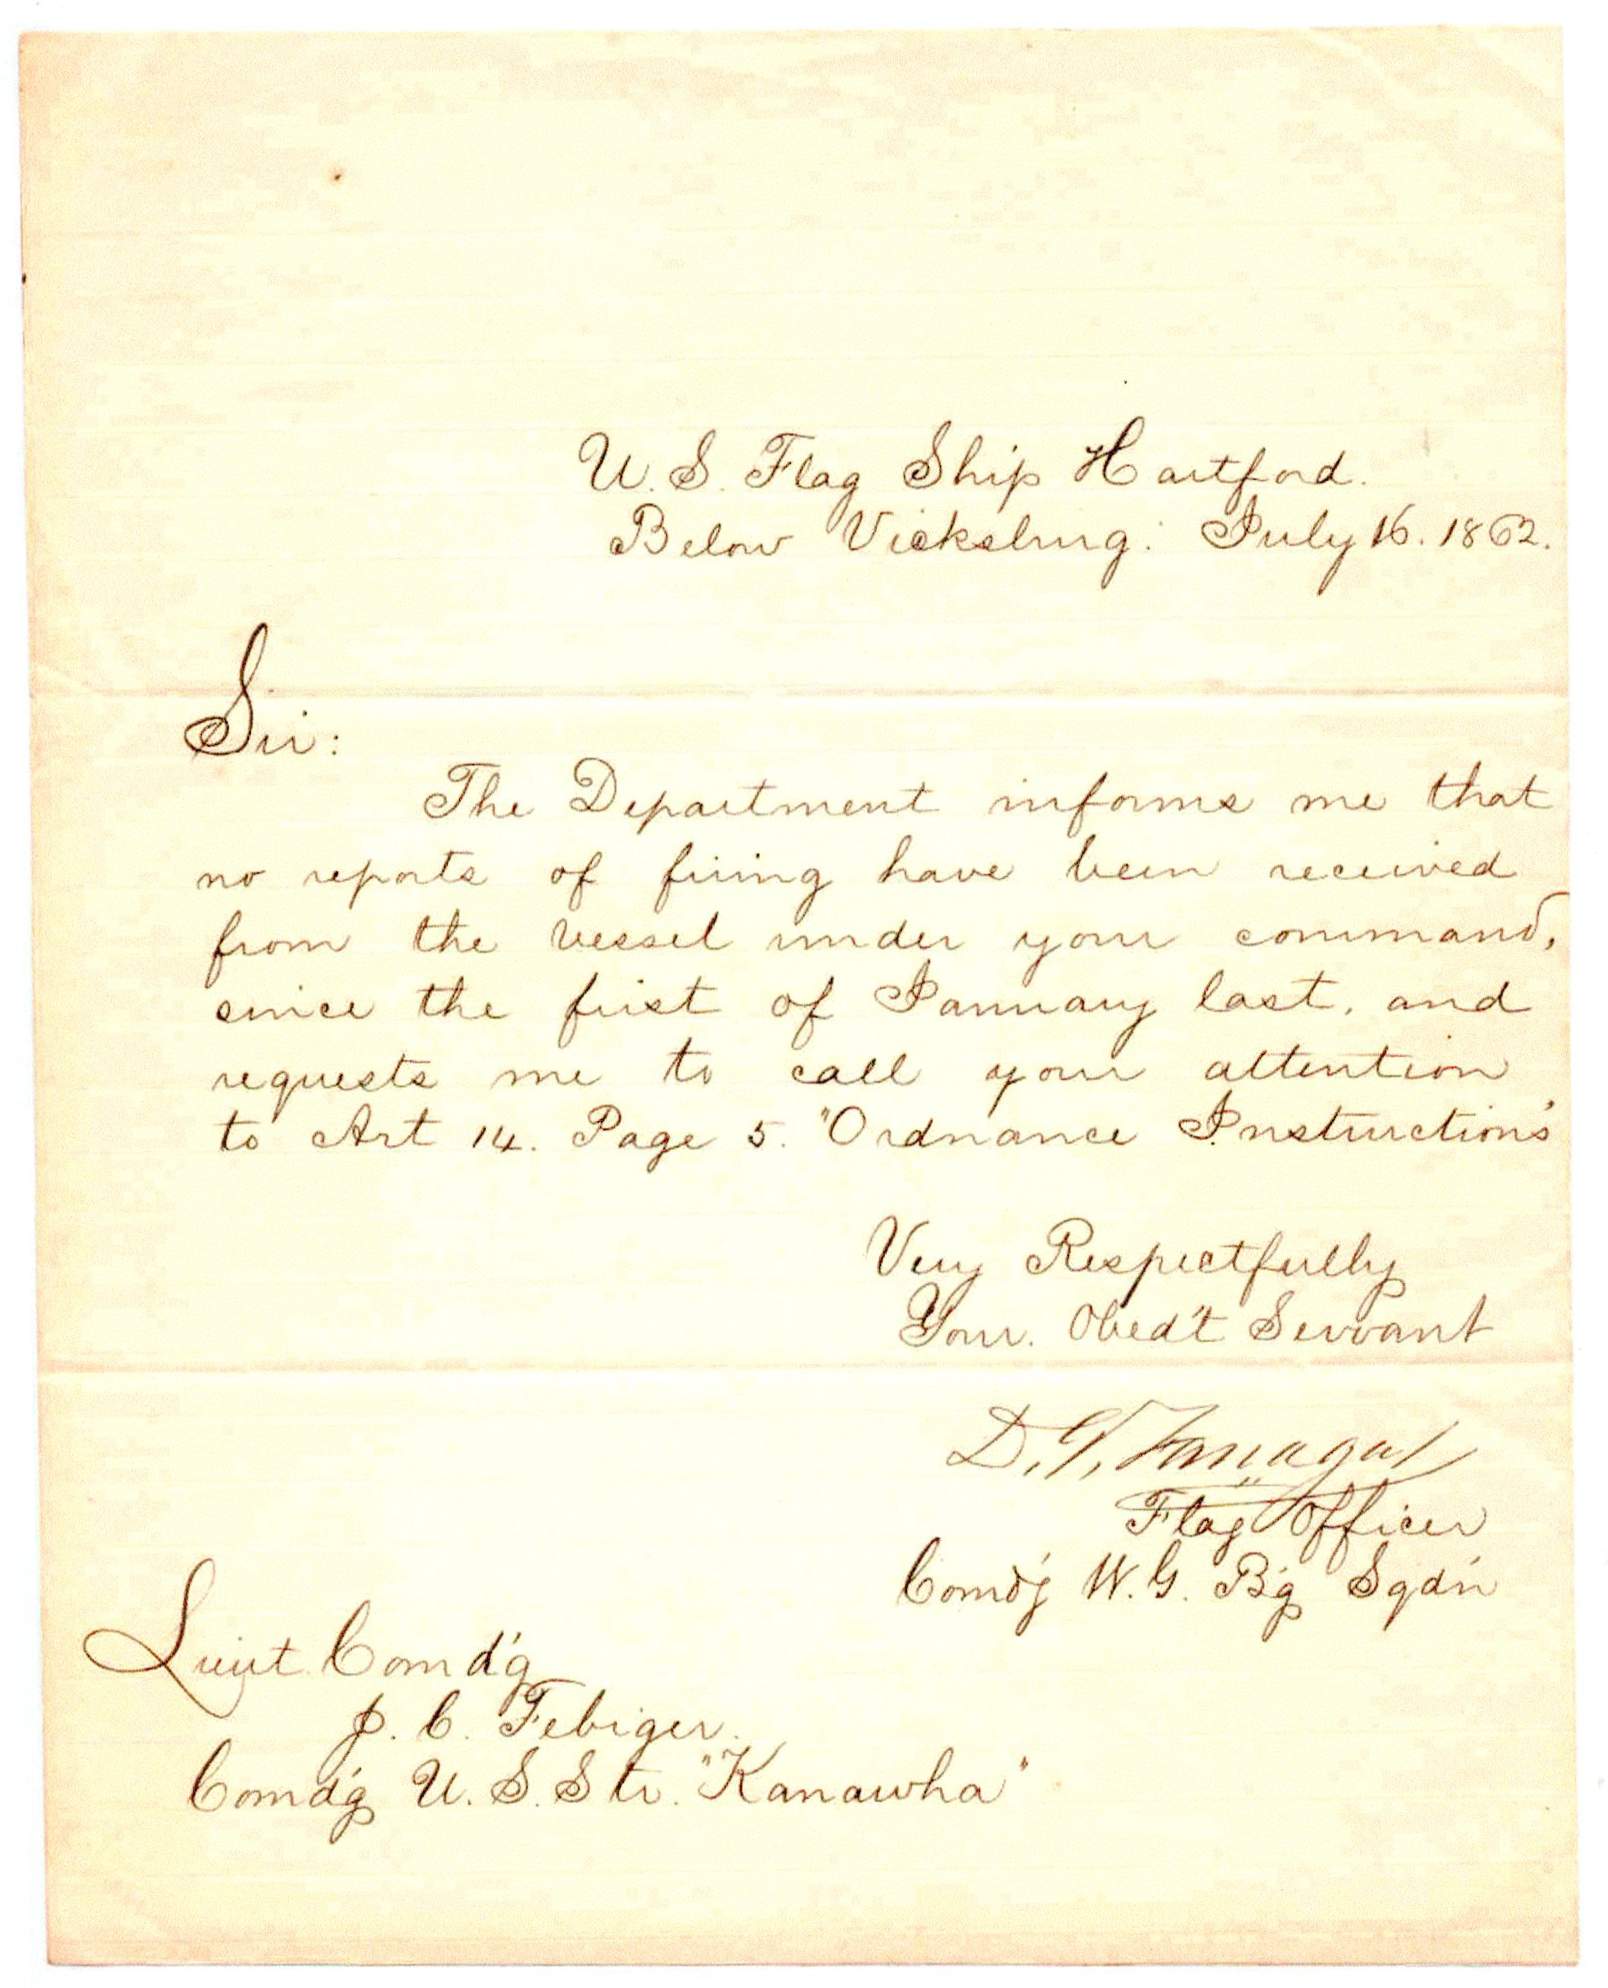 U. S. Flag Ship Hartford.
Below Vicksburg: July 16. 1862.
Sir:
The Department informs me that
no reports of firing have been received
from the vessel under your command,
since the first of January last, and
requests me to call your attention
to Art 14. Page 5. "Ordnance Instructions"
Very Respectfully
Your. Obed't Servant
D. G. Farragut
Flag Officer
Comd'g W. G. B'g Sqd'n
Lieut. Comd'g
J. C. Febiger.
Comd'g U. S. Str. "Kanawha"